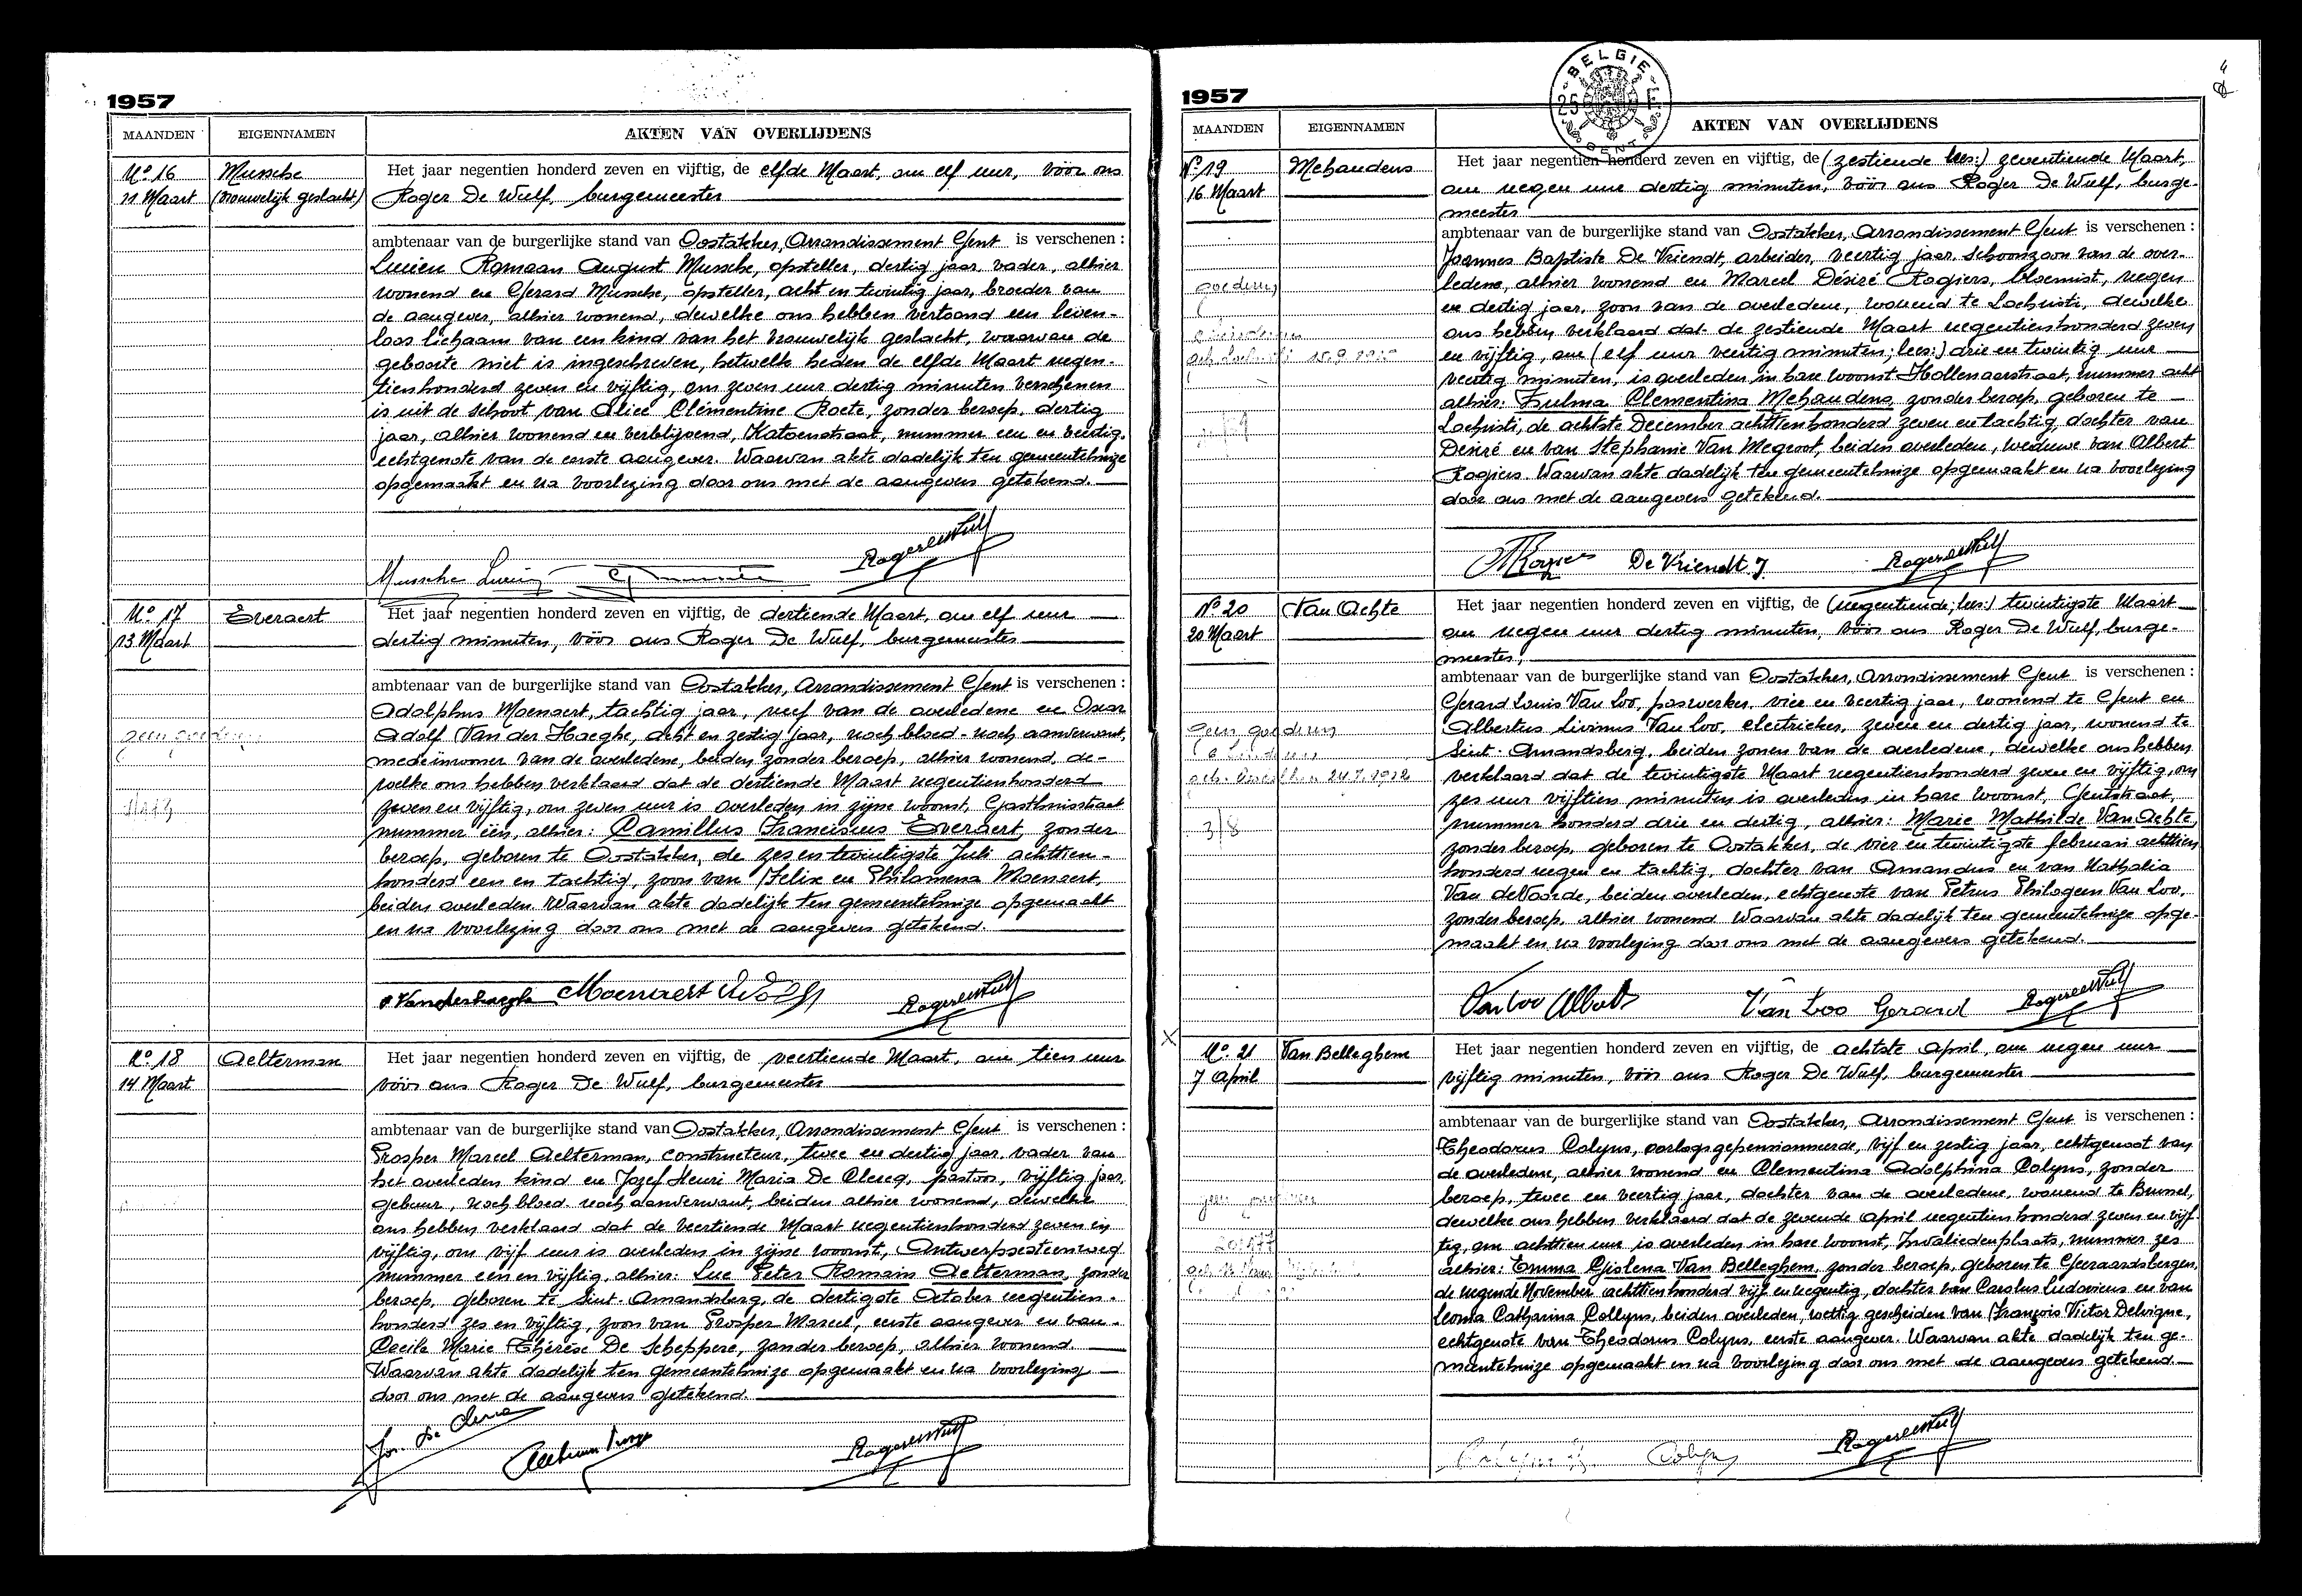 1957
MAANDEN EIGENNAMEN AKTEN VAN OVERLIJDENS
No 16 Mussche Het jaar negentien honderd zeven en vijftig, de elfde Maart, om elf uur, vóór ons
11 Maart (vrouwelijk geslacht) Roger De Wulf, burgemeester
ambtenaar van de burgerlijke stand van Oostakker, Arrondissement Gent is verschenen :
Lucien Romaan August Mussche, opsteller, dertig jaar, vader, alhier
wonend en Gerard Mussche, opsteller, acht en twintig jaar, broeder van
de aangever, alhier wonend, dewelke ons hebben vertoond een leven-
loos lichaam van een kind van het vrouwelijk geslacht, waarvan de
geboorte niet is ingeschreven, hetwelk heden de elfde Maart negen-
tienhonderd zeven en vijftig, om zeven uur dertig minuten verschenen
is uit de schoot van Alice Clémentine Roete, zonder beroep, dertig
jaar, alhier wonend en verblijvend, Katoenstraat, nummer een en veertig,
echtgenote van de eerste aangever. Waarvan akte dadelijk ten gemeentehuize
opgemaakt en na voorlezing door ons met de aangevers getekend.
Mussche Lucien
No 17 Everaert Het jaar negentien honderd zeven en vijftig, de dertiende Maart, om elf uur
13 Maart dertig minuten, vóór ons Roger De Wulf, burgemeester
ambtenaar van de burgerlijke stand van Oostakker, Arrondissement Gent is verschenen :
Adolphus Moenaert, tachtig jaar, neef van de overledene en Oscar
Adolf Van der Haeghe, acht en zestig jaar, noch bloed- noch aanverwant,
medeinwoner van de overledene, beiden zonder beroep, alhier wonend, de-
welke ons hebben verklaard dat de dertiende Maart negentienhonderd
zeven en vijftig, om zeven uur is overleden in zijne woonst, Gasthuisstraat
nummer één, alhier: Camillus Franciscus Everaert, zonder
beroep, geboren te Oostakker, de zes en twintigste Juli achttien-
honderd een en tachtig, zoon van Felix en Philomena Moenaert,
beiden overleden. Waarvan akte dadelijk ten gemeentehuize opgemaakt
en na voorlezing door ons met de aangevers getekend.
O. Vanderhaeghe Moenaert Adolf
No 18 Aelterman Het jaar negentien honderd zeven en vijftig, de veertiende Maart, om tien uur
14 Maart vóór ons Roger De Wulf, burgemeester
ambtenaar van de burgerlijke stand van Oostakker, Arrondissement Gent is verschenen :
Prosper Marcel Aelterman, constructeur, twee en dertig jaar, vader van
het overleden kind en Jozef Henri Maria De Clercq, pastoor, vijftig jaar,
gebuur, noch bloed- noch aanverwant, beiden alhier wonend, dewelke
ons hebben verklaard dat de veertiende Maart negentienhonderd zeven en
vijftig, om vijf uur is overleden in zijne woonst, Antwerpsesteenweg
nummer een en vijftig, alhier: Luc Peter Romain Aelterman, zonder
beroep, geboren te Sint-Amandsberg, de dertigste October negentien-
honderd zes en vijftig, zoon van Prosper Marcel, eerste aangever en van
Cecile Marie Thérèse De Scheppere, zonder beroep, alhier wonend.
Waarvan akte dadelijk ten gemeentehuize opgemaakt en na voorlezing
door ons met de aangevers getekend.
BELGIE 25 F GENT
1957
MAANDEN EIGENNAMEN AKTEN VAN OVERLIJDENS
No 19 Mehaudens Het jaar negentien honderd zeven en vijftig, de (zestiende lees:) zeventiende Maart,
16 Maart om negen uur dertig minuten, vóór ons Roger De Wulf, burge-
meester
ambtenaar van de burgerlijke stand van Oostakker, Arrondissement Gent is verschenen :
Joannes Baptiste De Vriendt, arbeider, veertig jaar, schoonzoon van de over-
ledene, alhier wonend en Marcel Désiré Rogiers, bloemist, negen
en dertig jaar, zoon van de overledene, wonend te Lochristi, dewelke
ons hebben verklaard dat de zestiende Maart negentienhonderd zeven
en vijftig, om (elf uur veertig minuten; lees:) drie en twintig uur
veertig minuten, is overleden in hare woonst Hollenaarstraat, nummer acht
alhier: Zulma Clementina Mehaudens, zonder beroep, geboren te
Lochristi, de achtste December achttienhonderd zeven en tachtig, dochter van
Désiré en van Stephanie Van Megroot, beiden overleden, weduwe van Albert
Rogiers. Waarvan akte dadelijk ten gemeentehuize opgemaakt en na voorlezing
door ons met de aangevers getekend.
De Vriendt J
No 20 Van Achte Het jaar negentien honderd zeven en vijftig, de (negentiende; lees:) twintigste Maart
20 Maart om negen uur dertig minuten, vóór ons Roger De Wulf, burge-
meester,
ambtenaar van de burgerlijke stand van Oostakker, Arrondissement Gent is verschenen :
Gerard Louis Van Loo, paswerker, vier en veertig jaar, wonend te Gent en
Albertus Livinus Van Loo, electrieker, zeven en dertig jaar, wonend te
Sint-Amandsberg, beiden zonen van de overledene, dewelke ons hebben
verklaard dat de twintigste Maart negentienhonderd zeven en vijftig, om
zes uur vijftien minuten is overleden in hare woonst, Gentstraat,
nummer honderd drie en dertig, alhier: Marie Mathilde Van Achte,
zonder beroep, geboren te Oostakker, de vier en twintigste februari achttien
honderd negen en tachtig, dochter van Amandus en van Nathalia
Van de Voorde, beiden overleden, echtgenote van Petrus Philogeen Van Loo,
zonder beroep, alhier wonend. Waarvan akte dadelijk ten gemeentehuize opge-
maakt en na voorlezing door ons met de aangevers getekend.
Van Loo Albert Van Loo Gerard
No 21 Van Belleghem Het jaar negentien honderd zeven en vijftig, de achtste April, om negen uur
7 April vijftig minuten, vóór ons Roger De Wulf, burgemeester
ambtenaar van de burgerlijke stand van Oostakker, Arrondissement Gent is verschenen :
Theodorus Colyns, oorlogsgepensionneerde, vijf en zestig jaar, echtgenoot van
de overledene, alhier wonend en Clementina Adolphina Colyns, zonder
beroep, twee en veertig jaar, dochter van de overledene, wonend te Brussel,
dewelke ons hebben verklaard dat de zevende April negentienhonderd zeven en vijf-
tig, om achttien uur is overleden in hare woonst, Invaliedenplaats, nummer zes
alhier: Emma Gislena Van Belleghem, zonder beroep, geboren te Geeraardsbergen,
de negende November achttienhonderd vijf en negentig, dochter van Carolus Ludovicus en van
Leonia Catharina Collyns, beiden overleden, wettig gescheiden van François Victor Delvigne,
echtgenote van Theodorus Colyns, eerste aangever. Waarvan akte dadelijk ten ge-
meentehuize opgemaakt en na voorlezing door ons met de aangevers getekend
Colyns